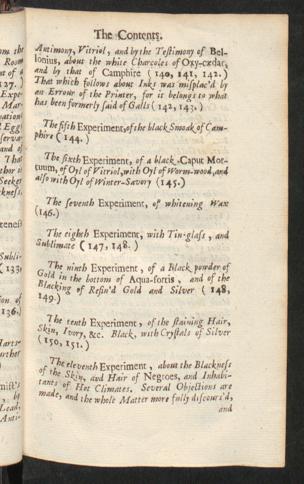 The Contents.
Antimony, Vitriol, and by the Testimony of Bel-
lonius, about the white Charcoles of Oxy-cædar,
and by that of Camphire (140, 141, 142.)
That which follows about Inks was misplac'd by
an Errour of the Printer, for it belongs to what
has been formerly said of Galls (142, 143.)
The fifth Experiment, of the black Smoak of Cam-
phire (144.)
The sixth Experiment, of a black Caput Mor-
tuum, of Oyl of Vitriol, with Oyl of Worm-wood, and
also with Oyl of Winter-Savory (145.)
The seventh Experiment, of whitening Wax
(146.)
The eighth Experiment, with Tin-glass, and
Sublimate (147, 148.)
The ninth Experiment, of a Black powder of
Gold in the bottom of Aqua-fortis, and of the
Blacking of Refin'd Gold and Silver (148,
149.)
The tenth Experiment, of the staining Hair,
Skin, Ivory, &c. Black, with Crystals of Silver
(150, 151.)
The eleventh Experiment, about the Blackness
of the Skin, and Hair of Negroes, and Inhabi-
tants of Hot Climates. Several Objections are
made, and the whole Matter more fully discours'd,
and